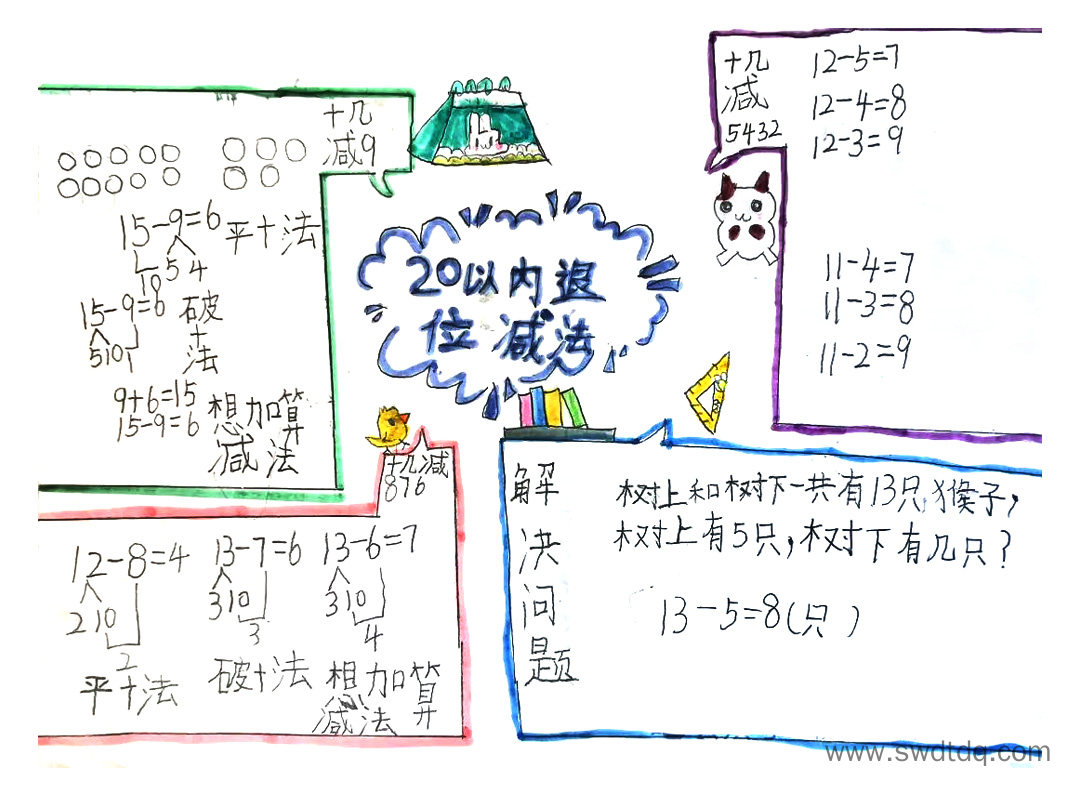 20以内退
位减法
十几
减9
15-9=6 平十法
5 4
10
15-9=6 破
十
法
5 10
9+6=15
15-9=6
想加算
减法
十几
减
5432
12-5=7
12-4=8
12-3=9
11-4=7
11-3=8
11-2=9
十几减
876
12-8=4
2 10
2
平十法
13-7=6
3 10
3
破十法
13-6=7
3 10
4
想加算
减法
解
决
问
题
树上和树下一共有13只猴子,
树上有5只,树下有几只?
13-5=8(只)
www.swdtdq.com